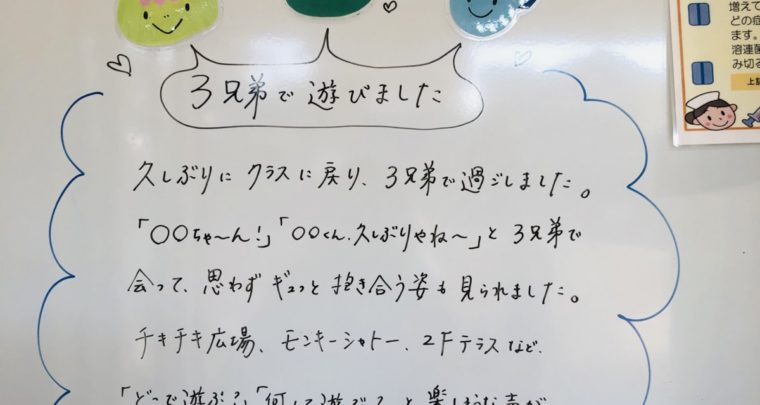 3兄弟で遊びました
久しぶりにクラスに戻り、3兄弟で過ごしました。
「〇〇ちゃ〜ん!」「〇〇くん、久しぶりやね〜」と3兄弟で
会って、思わずギュッと抱き合う姿も見られました。
チキチキ広場、モンキーシャトー、2Fテラスなど、
「どこで遊ぶ?」「何して遊ぶ?」と楽しそうな声が
増えて
どの症
ます。
溶連菌
み切る
上記